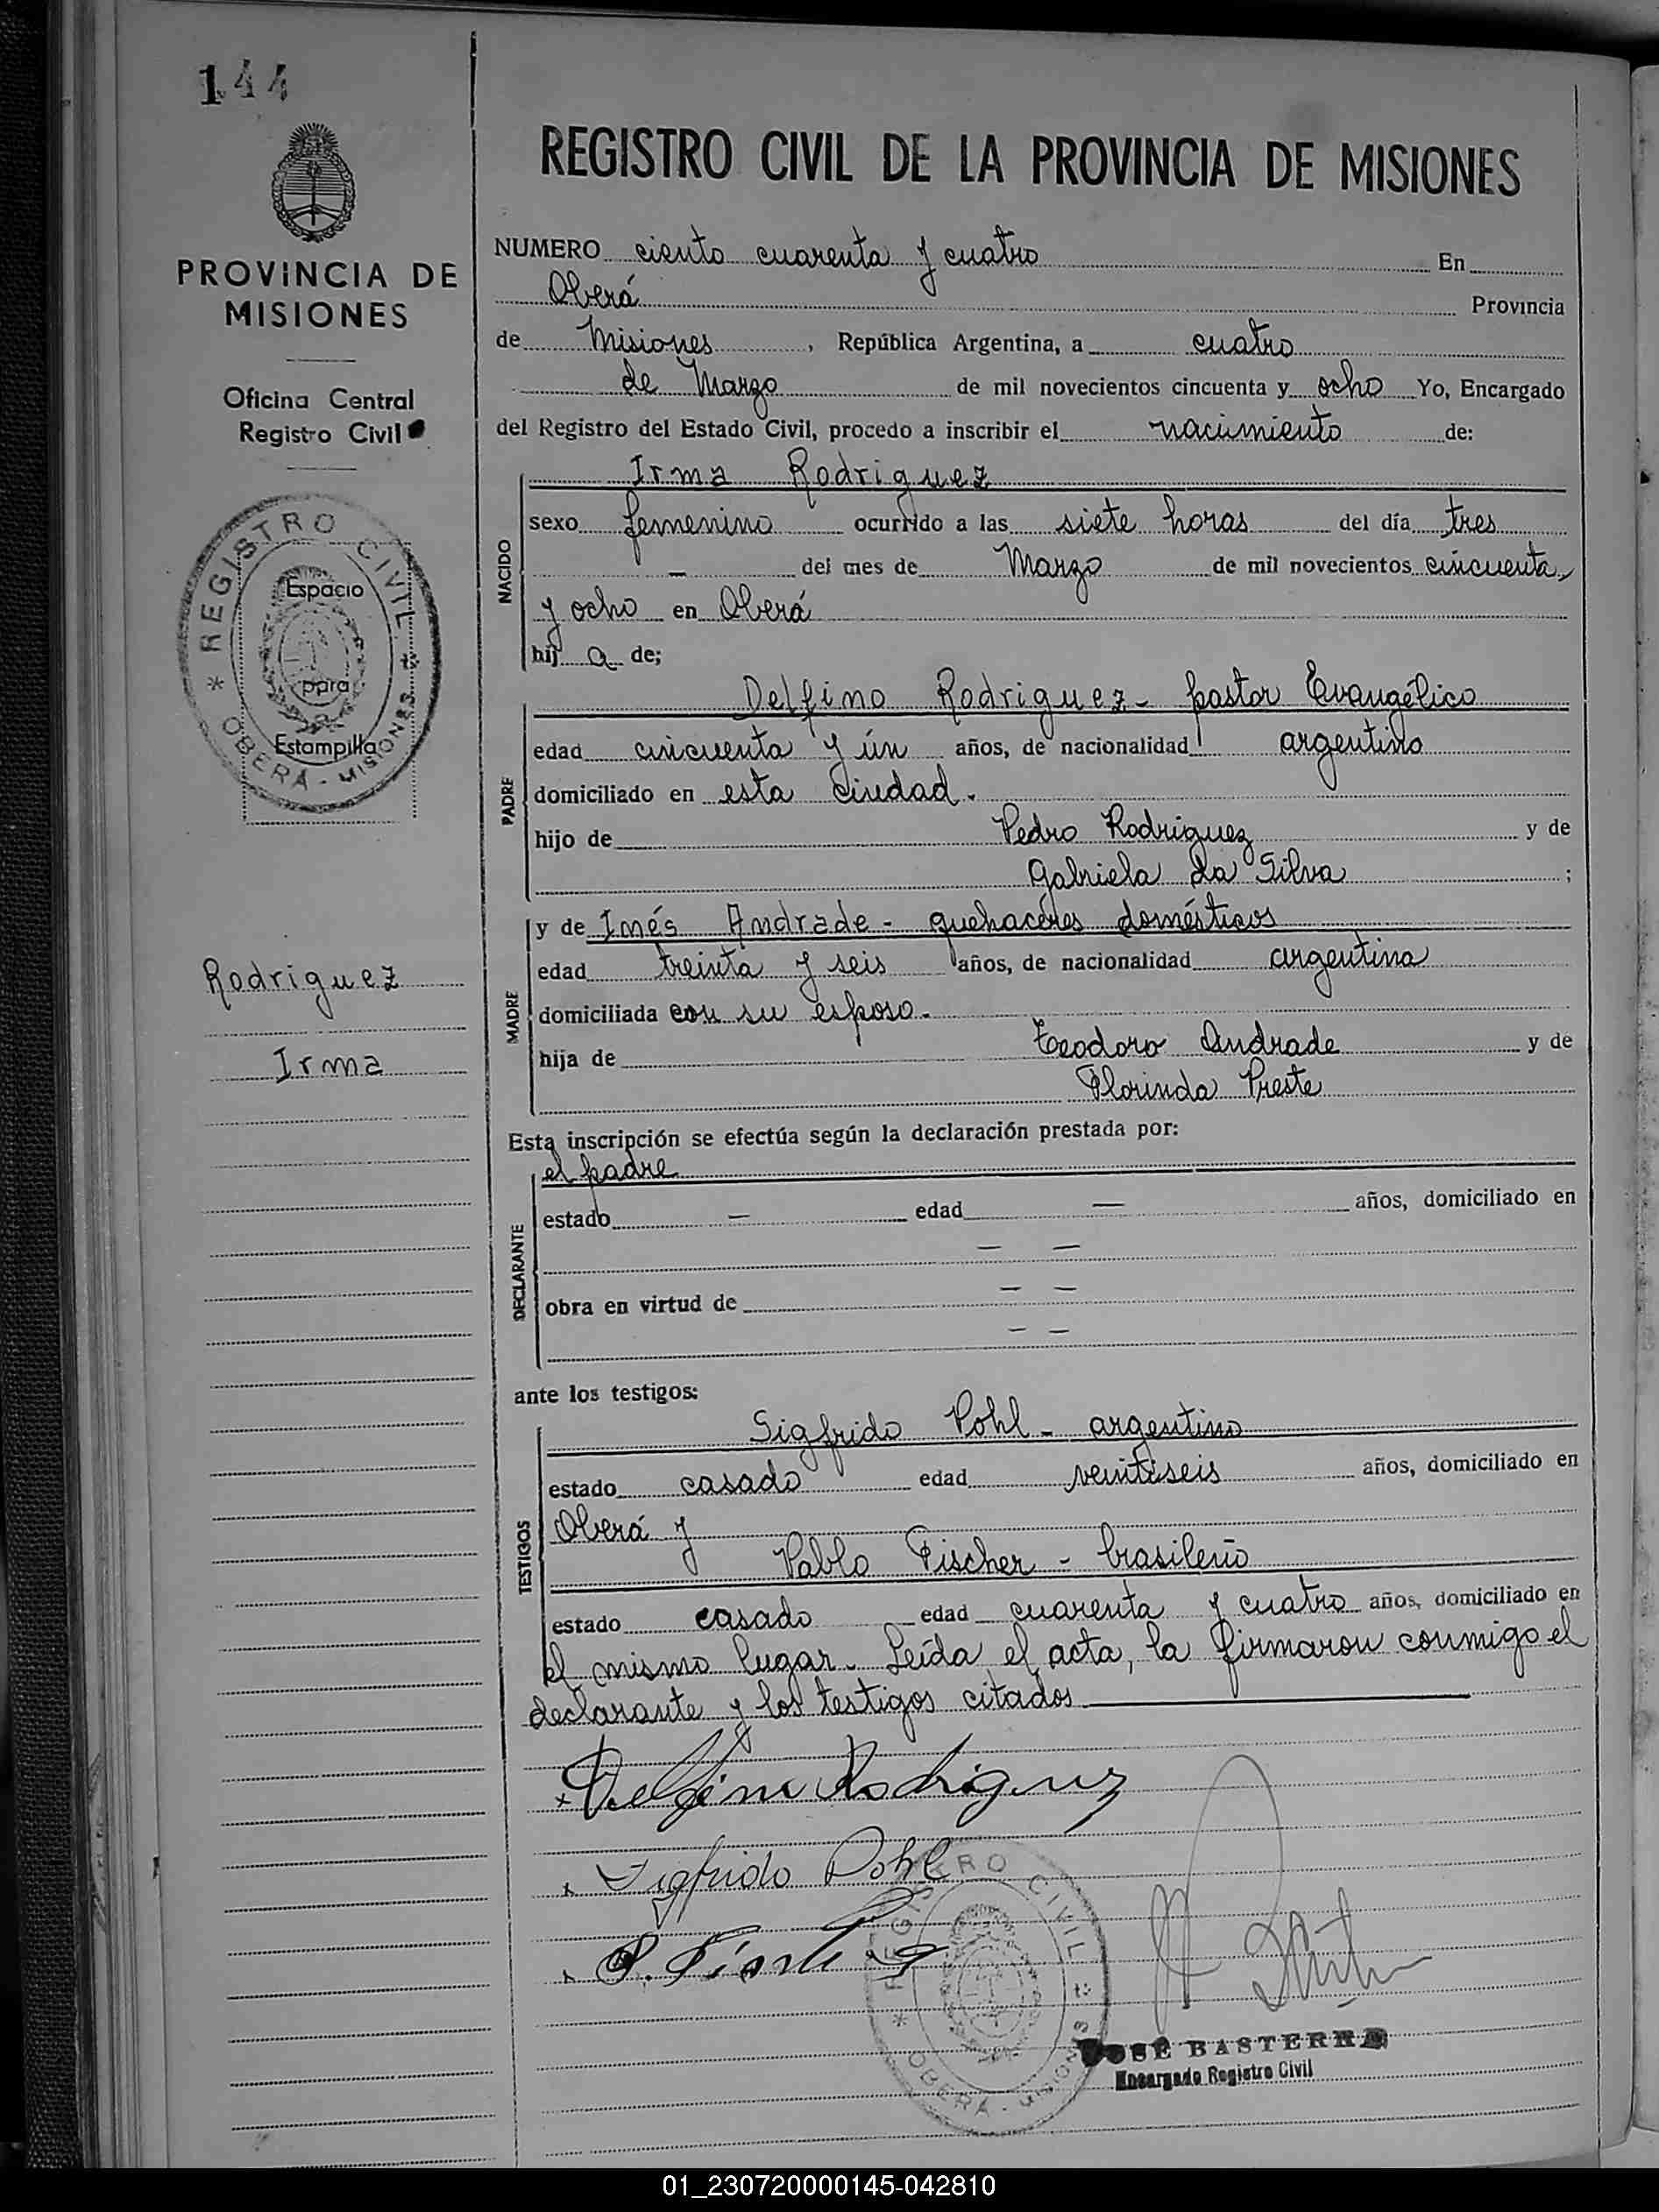 144
PROVINCIA DE
MISIONES
Oficina Central
Registro Civil
* REGISTRO CIVIL *
Espacio
para
Estampilla
OBERÁ - MISIONES
Rodriguez
Irma
REGISTRO CIVIL DE LA PROVINCIA DE MISIONES
NUMERO ciento cuarenta y cuatro En
Oberá Provincia
de Misiones, República Argentina, a cuatro
de Marzo de mil novecientos cincuenta y ocho Yo, Encargado
del Registro del Estado Civil, procedo a inscribir el nacimiento de:
NACIDO
Irma Rodriguez
sexo femenino ocurrido a las siete horas del día tres
— del mes de Marzo de mil novecientos cincuenta
y ocho en Oberá
hij a de;
PADRE
Delfino Rodriguez - pastor Evangélico
edad cincuenta y ún años, de nacionalidad argentino
domiciliado en esta ciudad.
hijo de Pedro Rodriguez y de
Gabriela da Silva ;
MADRE
y de Inés Andrade - quehaceres domésticos
edad treinta y seis años, de nacionalidad argentina
domiciliada con su esposo.
hija de Teodoro Andrade y de
Florinda Preste
Esta inscripción se efectúa según la declaración prestada por:
DECLARANTE
el padre
estado — edad — años, domiciliado en
— —
obra en virtud de — —
— —
ante los testigos:
TESTIGOS
Sigfrido Pohl - argentino
estado casado edad veintiseis años, domiciliado en
Oberá y
Pablo Fischer - brasileño
estado casado edad cuarenta y cuatro años, domiciliado en
el mismo lugar. Leída el acta, la firmaron conmigo el
declarante y los testigos citados
Delfino Rodriguez
Sigfrido Pohl
* REGISTRO CIVIL *
OBERÁ - MISIONES
JOSÉ BASTERRA
Encargado Registro Civil
01_230720000145-042810